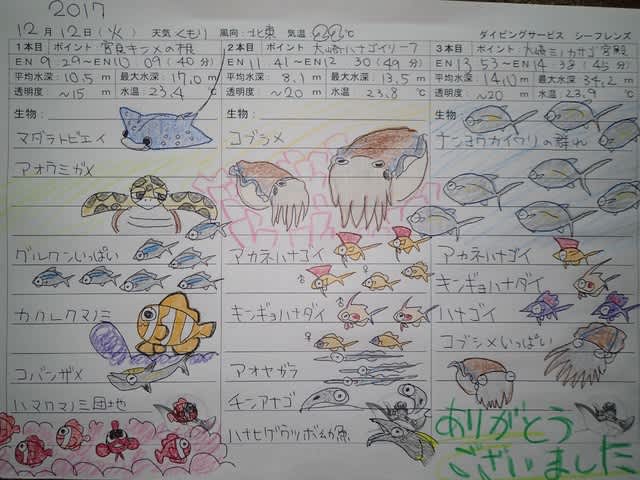 2017
12月12日(火) 天気 くもり 風向: 北東 気温 22℃ ダイビングサービス シーフレンズ
1本目 ポイント
EN 9:29~EN 10:09 (40分)
平均水深: 10.5m 最大水深: 17.0m
透明度 ~15m 水温: 23.4℃
生物:
マダラトビエイ
アオウミガメ
グルクンいっぱい
カクレクマノミ
コバンザメ
ハマクマノミ団地
2本目 ポイント 大崎ハナゴイリーフ
EN 11:41~EN 12:30 (49分)
平均水深: 8.1m 最大水深: 13.5m
透明度 ~20m 水温: 23.8℃
生物:
コブシメ
アカネハナゴイ
キンギョハナダイ
アオヤガラ
チンアナゴ
ハナヒゲウツボ幼魚
3本目 ポイント 大崎ミノカサゴ宮殿
EN 13:53~EN 14:38 (45分)
平均水深: 14.0m 最大水深: 34.2m
透明度 ~20m 水温: 23.9℃
生物:
ナンヨウカイワリの群れ
アカネハナゴイ
キンギョハナダイ
ハナゴイ
コブシメいっぱい
ありがとう
ございました